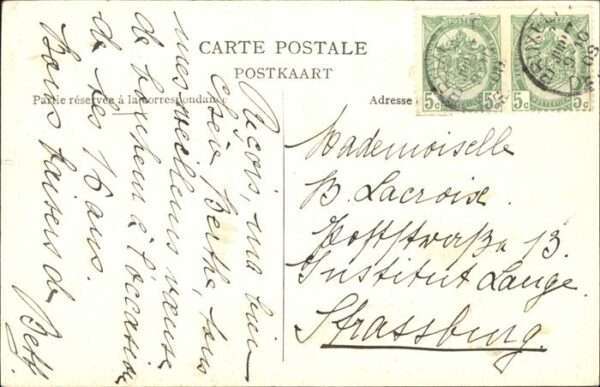 CARTE POSTALE
POSTKAART
Partie réservée à la correspondance
Adresse
Reçois, ma bien
chère Berthe, tous
mes meilleurs vœux
de bonheur à l'occasion
de tes 16 ans.
Bons baisers de
Betty.
Mademoiselle
B. Lacroix.
13.
Institut Lange.
Strassburg.
5c
5c
5c
5c